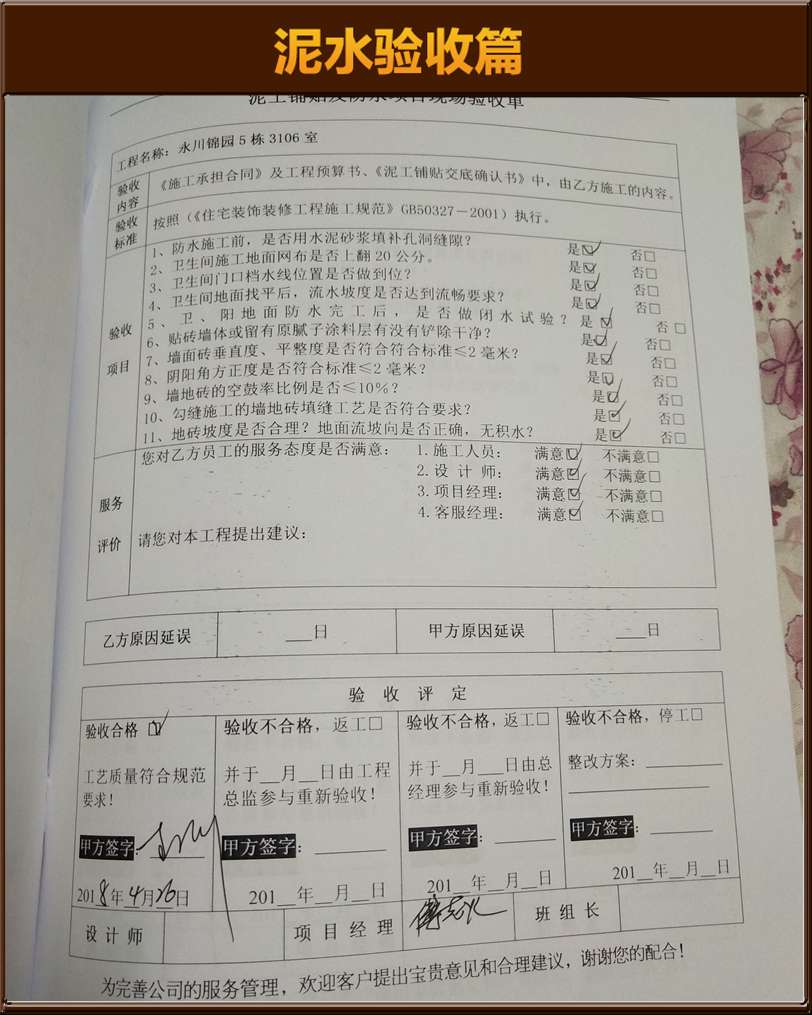 泥水验收篇
泥工铺贴及防水项目现场验收单
工程名称：永川锦园5栋3106室
验收内容
《施工承担合同》及工程预算书、《泥工铺贴交底确认书》中，由乙方施工的内容。
验收标准
按照（《住宅装饰装修工程施工规范》GB50327－2001）执行。
验收项目
1、防水施工前，是否用水泥砂浆填补孔洞缝隙？ 是☑ 否□
2、卫生间施工地面网布是否上翻20公分。 是☑ 否□
3、卫生间门口档水线位置是否做到位？ 是☑ 否□
4、卫生间地面找平后，流水坡度是否达到流畅要求？ 是☑ 否□
5、卫、阳地面防水完工后，是否做闭水试验？ 是☑ 否□
6、贴砖墙体或留有原腻子涂料层有没有铲除干净？ 是☑ 否□
7、墙面砖垂直度、平整度是否符合符合标准≤2毫米？ 是☑ 否□
8、阴阳角方正度是否符合标准≤2毫米？ 是☑ 否□
9、墙地砖的空鼓率比例是否≤10%？ 是☑ 否□
10、勾缝施工的墙地砖填缝工艺是否符合要求？ 是☑ 否□
11、地砖坡度是否合理？地面流坡向是否正确，无积水？ 是☑ 否□
服务评价
您对乙方员工的服务态度是否满意： 1.施工人员： 满意☑ 不满意□
2.设 计 师： 满意☑ 不满意□
3.项目经理： 满意☑ 不满意□
4.客服经理： 满意☑ 不满意□
请您对本工程提出建议：
乙方原因延误 ___日 甲方原因延误 ___日
验 收 评 定
验收合格 ☑
工艺质量符合规范
要求！
甲方签字：
2018年4月26日
验收不合格，返工□
并于__月__日由工程
总监参与重新验收！
甲方签字：______
201__年__月__日
验收不合格，返工□
并于__月___日由总
经理参与重新验收！
甲方签字：______
201__年__月__日
验收不合格，停工□
整改方案：________
甲方签字：______
201__年__月__日
设计师 项目经理 班组长
为完善公司的服务管理，欢迎客户提出宝贵意见和合理建议，谢谢您的配合！